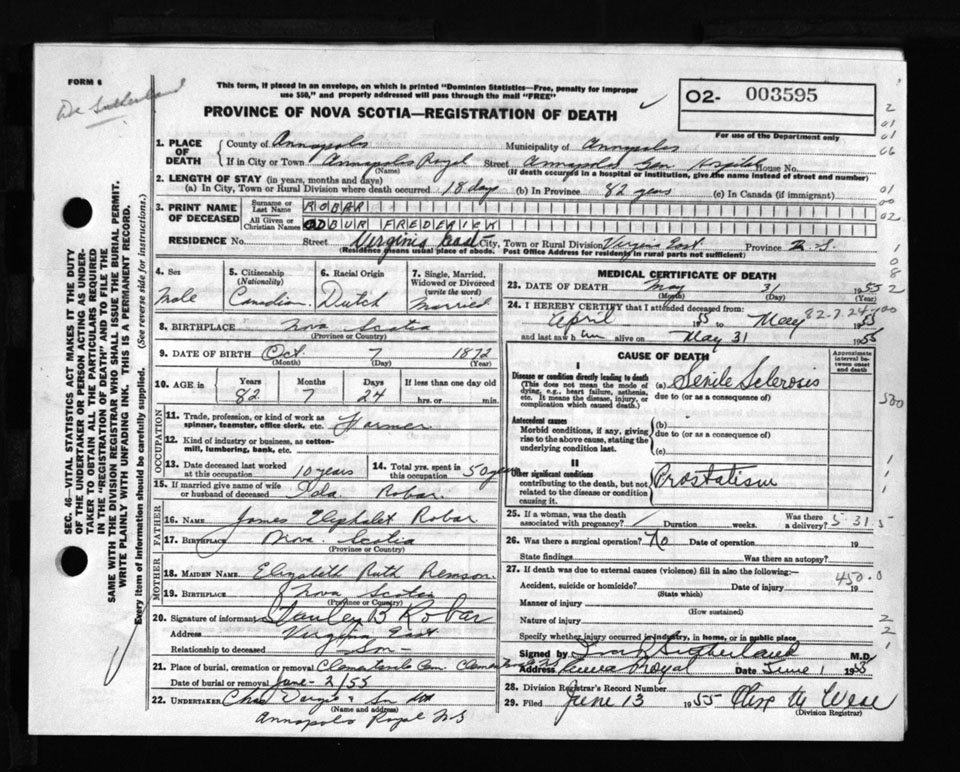 FORM 6
Dr Sutherland
This form, if placed in an envelope, on which is printed "Dominion Statistics—Free, penalty for improper
use $50," and properly addressed will pass through the mail "FREE"
PROVINCE OF NOVA SCOTIA—REGISTRATION OF DEATH
O2- 003595
For use of the Department only
SEC. 46- VITAL STATISTICS ACT MAKES IT THE DUTY
OF THE UNDERTAKER OR PERSON ACTING AS UNDER-
TAKER TO OBTAIN ALL THE PARTICULARS REQUIRED
IN THE "REGISTRATION OF DEATH" AND TO FILE THE
SAME WITH THE DIVISION REGISTRAR WHO SHALL ISSUE THE BURIAL PERMIT.
WRITE PLAINLY WITH UNFADING INK. THIS IS A PERMANENT RECORD.
Every item of information should be carefully supplied. (See reverse side for instructions.)
1. PLACE OF DEATH County of Annapolis Municipality of Annapolis
If in City or Town Annapolis Royal Street Annapolis Gen Hospital House No.
(Name) (If death occurred in a hospital or institution, give the name instead of street and number)
2. LENGTH OF STAY (in years, months and days)
(a) In City, Town or Rural Division where death occurred 18 days (b) In Province 82 years (c) In Canada (if immigrant)
3. PRINT NAME OF DECEASED Surname or Last Name ROBAR
All Given or Christian Names ODBUR FREDERICK
RESIDENCE No. Street Virginia East City, Town or Rural Division Virginia East Province N.S.
(Residence means usual place of abode. Post Office Address for residents in rural parts not sufficient)
4. Sex Male
5. Citizenship (Nationality) Canadian
6. Racial Origin Dutch
7. Single, Married, Widowed or Divorced (write the word) Married
8. BIRTHPLACE Nova Scotia
(Province or Country)
9. DATE OF BIRTH Oct. 7 1872
(Month) (Day) (Year)
10. AGE in Years Months Days If less than one day old
82 7 24 hrs. or min.
OCCUPATION
11. Trade, profession, or kind of work as spinner, teamster, office clerk, etc. Farmer
12. Kind of industry or business, as cotton-mill, lumbering, bank, etc.
13. Date deceased last worked at this occupation 10 years
14. Total yrs. spent in this occupation 50 years
15. If married give name of wife or husband of deceased Ida Robar
FATHER
16. NAME James Eliphalet Robar
17. BIRTHPLACE Nova Scotia
(Province or Country)
MOTHER
18. MAIDEN NAME Elizabeth Ruth Remson
19. BIRTHPLACE Nova Scotia
(Province or Country)
20. Signature of informant Stanley B Robar
Address Virginia East
Relationship to deceased Son
21. Place of burial, cremation or removal Clementsvale Cem. Clementsvale NS
Date of burial or removal June 2/55
22. UNDERTAKER Chas & Son
(Name and address)
Annapolis Royal NS
MEDICAL CERTIFICATE OF DEATH
23. DATE OF DEATH May 31 1955
(Month) (Day) (Year)
24. I HEREBY CERTIFY that I attended deceased from:
April 1955 to May 1955
and last saw him alive on May 31 1955
82.7.24
CAUSE OF DEATH
Approximate interval between onset and death
I
Disease or condition directly leading to death
(This does not mean the mode of dying, e.g., heart failure, asthenia, etc. It means the disease, injury, or complication which caused death.)
(a) Senile Sclerosis
due to (or as a consequence of)
Antecedent causes
Morbid conditions, if any, giving rise to the above cause, stating the underlying condition last.
(b)
due to (or as a consequence of)
(c)
II
Other significant conditions
contributing to the death, but not related to the disease or condition causing it.
Prostatism
25. If a woman, was the death associated with pregnancy? Duration weeks. Was there a delivery?
5-31-5
26. Was there a surgical operation? No Date of operation 19
State findings Was there an autopsy?
27. If death was due to external causes (violence) fill in also the following:
450.0
Accident, suicide or homicide? Date of injury 19
(State which)
Manner of injury
(How sustained)
Nature of injury
Specify whether injury occurred in industry, in home, or in public place
Signed by Sutherland M.D.
Address Anna Royal Date June 1 1955
28. Division Registrar's Record Number
29. Filed June 13 1955
(Division Registrar)